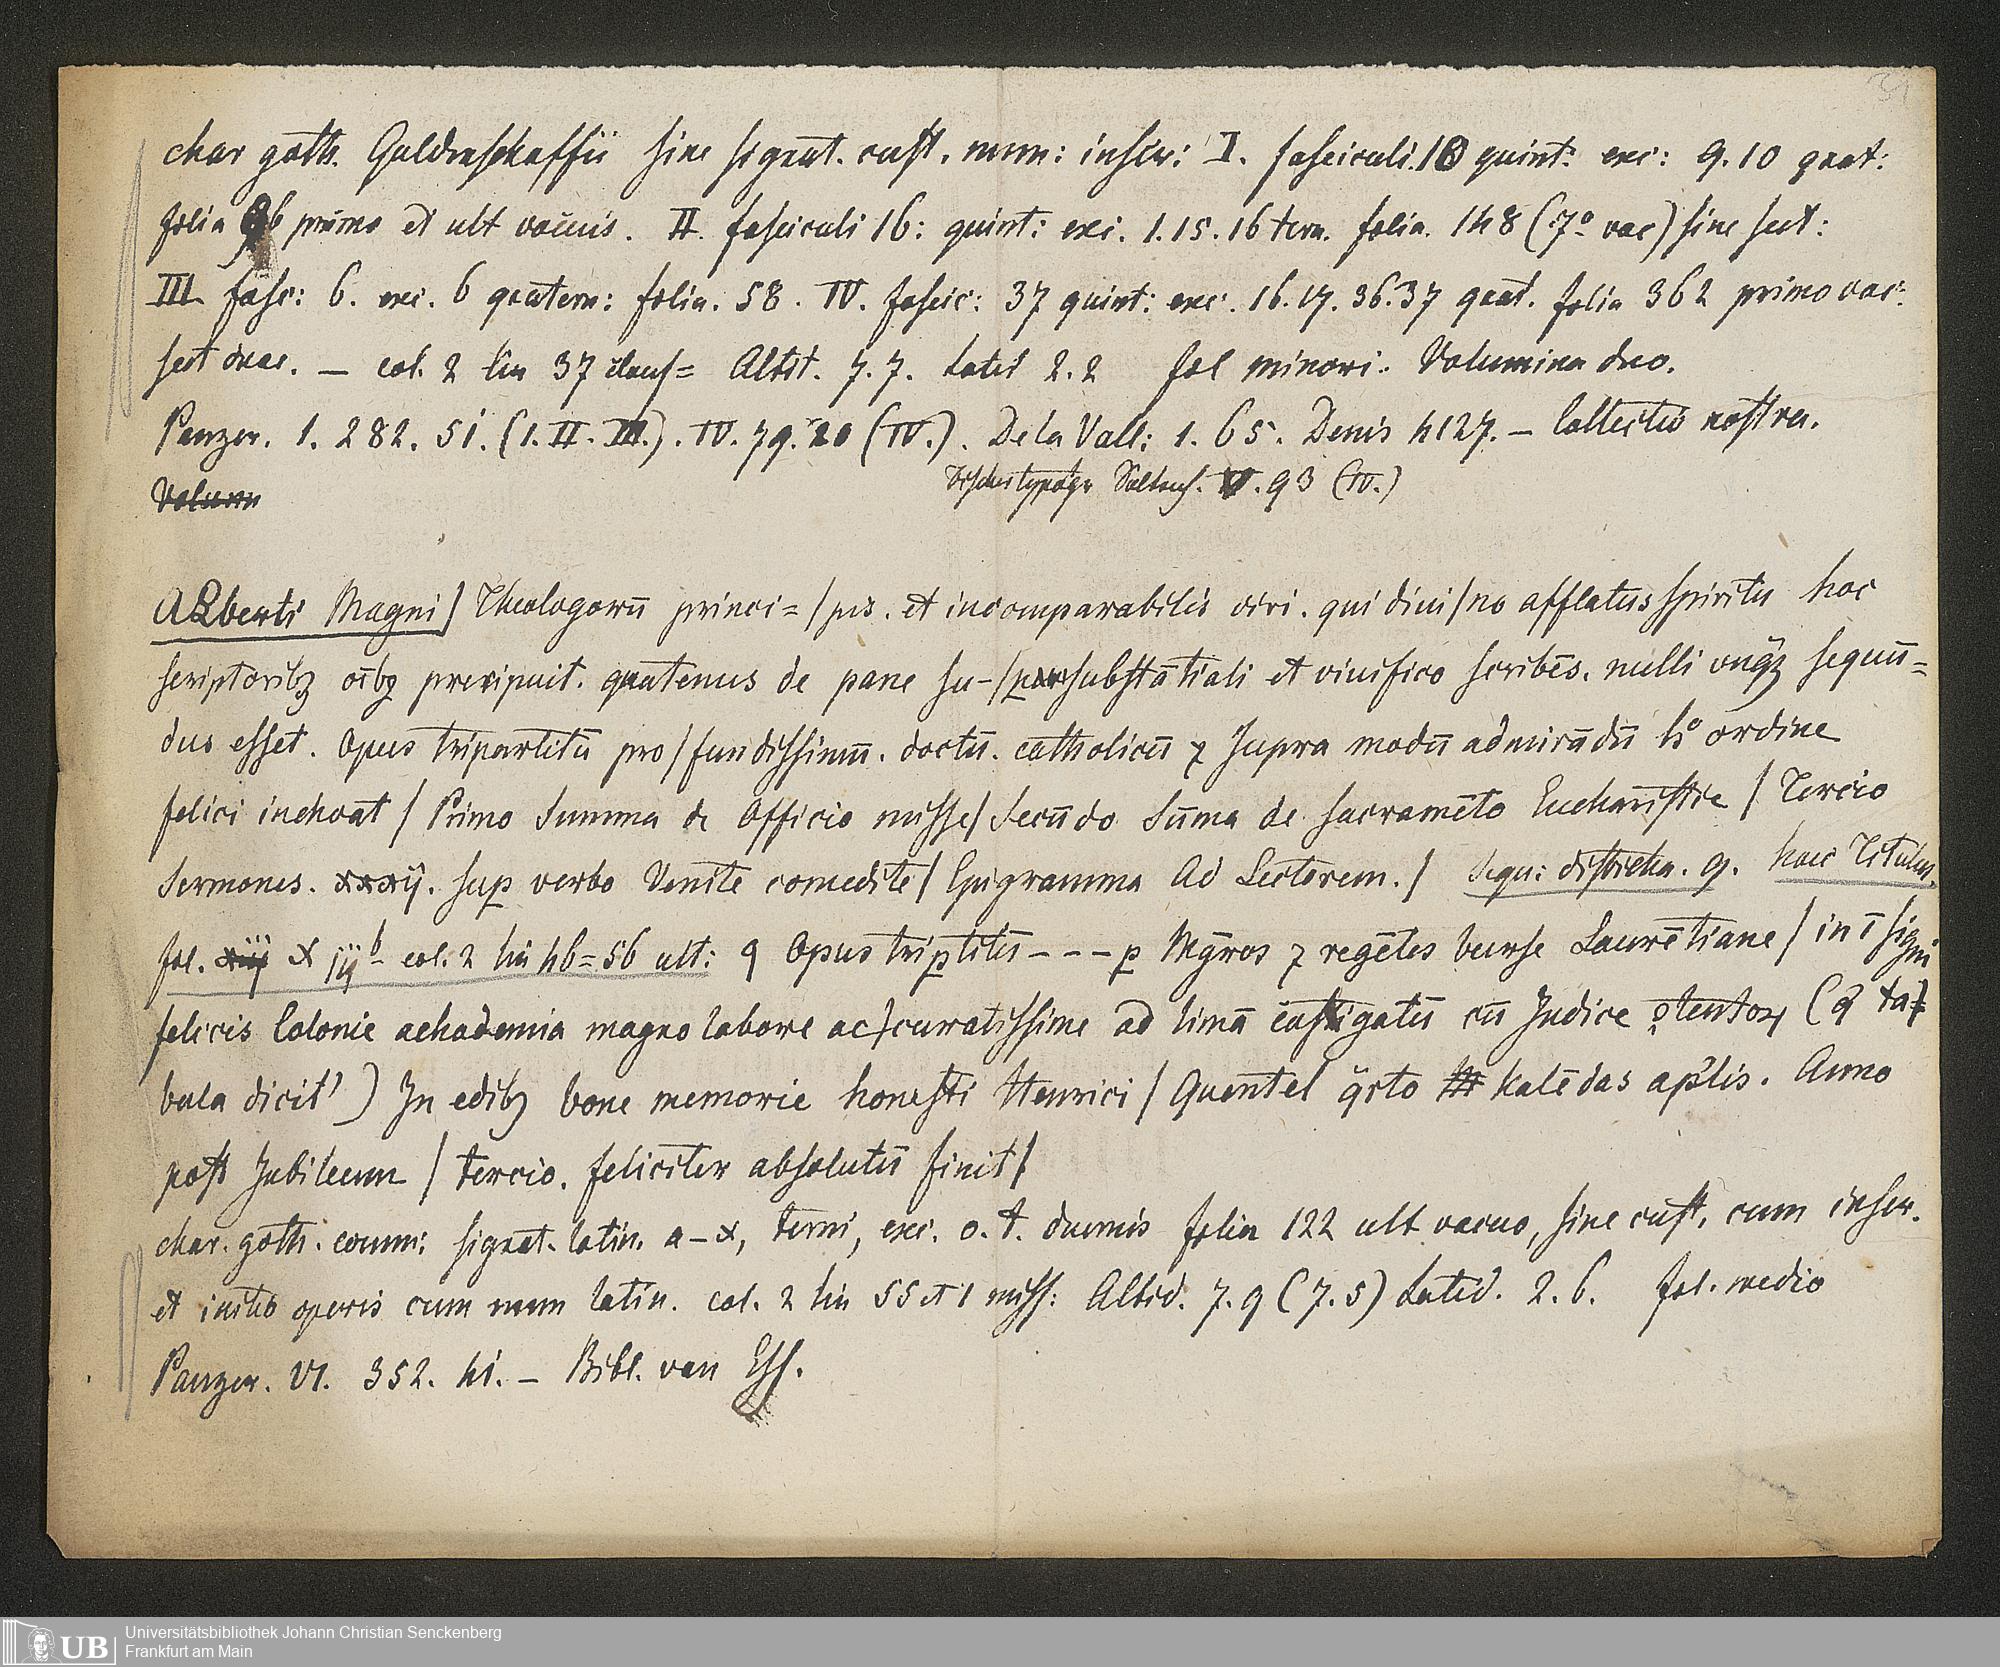 31
char goth. Guldenschaffii sine signat. cust. num: inscr: I. fasciculi. 10 quint: exc: 9. 10 quat:
folia 96 primo et ult vacuis. II. fasciculi 16: quint: exc. 1. 15. 16 tern. folia. 148 (7º vac) sine sect:
III fasc: 6. exc. 6 quatern: folia. 58. IV. fascic: 37 quint: exc. 16. 17. 36. 37 quat. folia 362 primo vac:
sect duae. — col. 2 lin 37 claus= Altit. 7. 7. Latit 2. 2 fol minori. Volumina duo.
Panzer. 1. 282. 51. (I. II. III.). IV. 79. 20 (IV.). De la Vall: 1. 65. Denis 4127. — Collectio nostra.
Volum
typogr V. 93 (IV.)
Alberti Magni / Theologorū princi= / pis. et incomparabilis viri. qui diui / no afflatus spiritu hoc
scriptoribꝫ oībꝫ precipuit. quatenus de pane su- / persubstātiali et viuifico scribēs. nulli vnq̄ꝫ secun̄=
dus esset. Opus tripartitū pro / fundissimū. doctū. catholicū ⁊ supra modū admirādū hº ordine
felici inchoat / Primo Summa de Officio misse / Secūdo Sūma de sacramēto Eucharistie / Tercio
Sermones. xxxij. sup verbo Venite comedite / Epigramma Ad Lectorem. / Sequ: disticha. q. haec Titulus.
fol. xiij x iijᵇ col. 2 lin 46=56 ult: q Opus triptitū - - - p Mḡros ⁊ regētes burse Laurētiane / in īsigni
felicis Colonie achademia magno labore ac / curatissime ad limā castigatū cū Indice ꝯtentoꝝ (q ta /
bula dicit') In edibꝫ bone memorie honesti Henrici / Quentel q̈rto kalēdas ap'lis. Anno
post Jubileum / tercio. feliciter absolutū finit /
char. goth. comm: signat. latin. a — x, terni, exc. o. t. duernis folia 122 ult vacuo, sine cust. cum inscr.
et initio operis cum num latin. col. 2 lin 55 et 1 miss: Altid. 7. 9 (7. 5) Latid. 2. 6. fol. medio
Panzer. VI. 352. 41. — Bibl. van Ess.
UB
Universitätsbibliothek Johann Christian Senckenberg
Frankfurt am Main